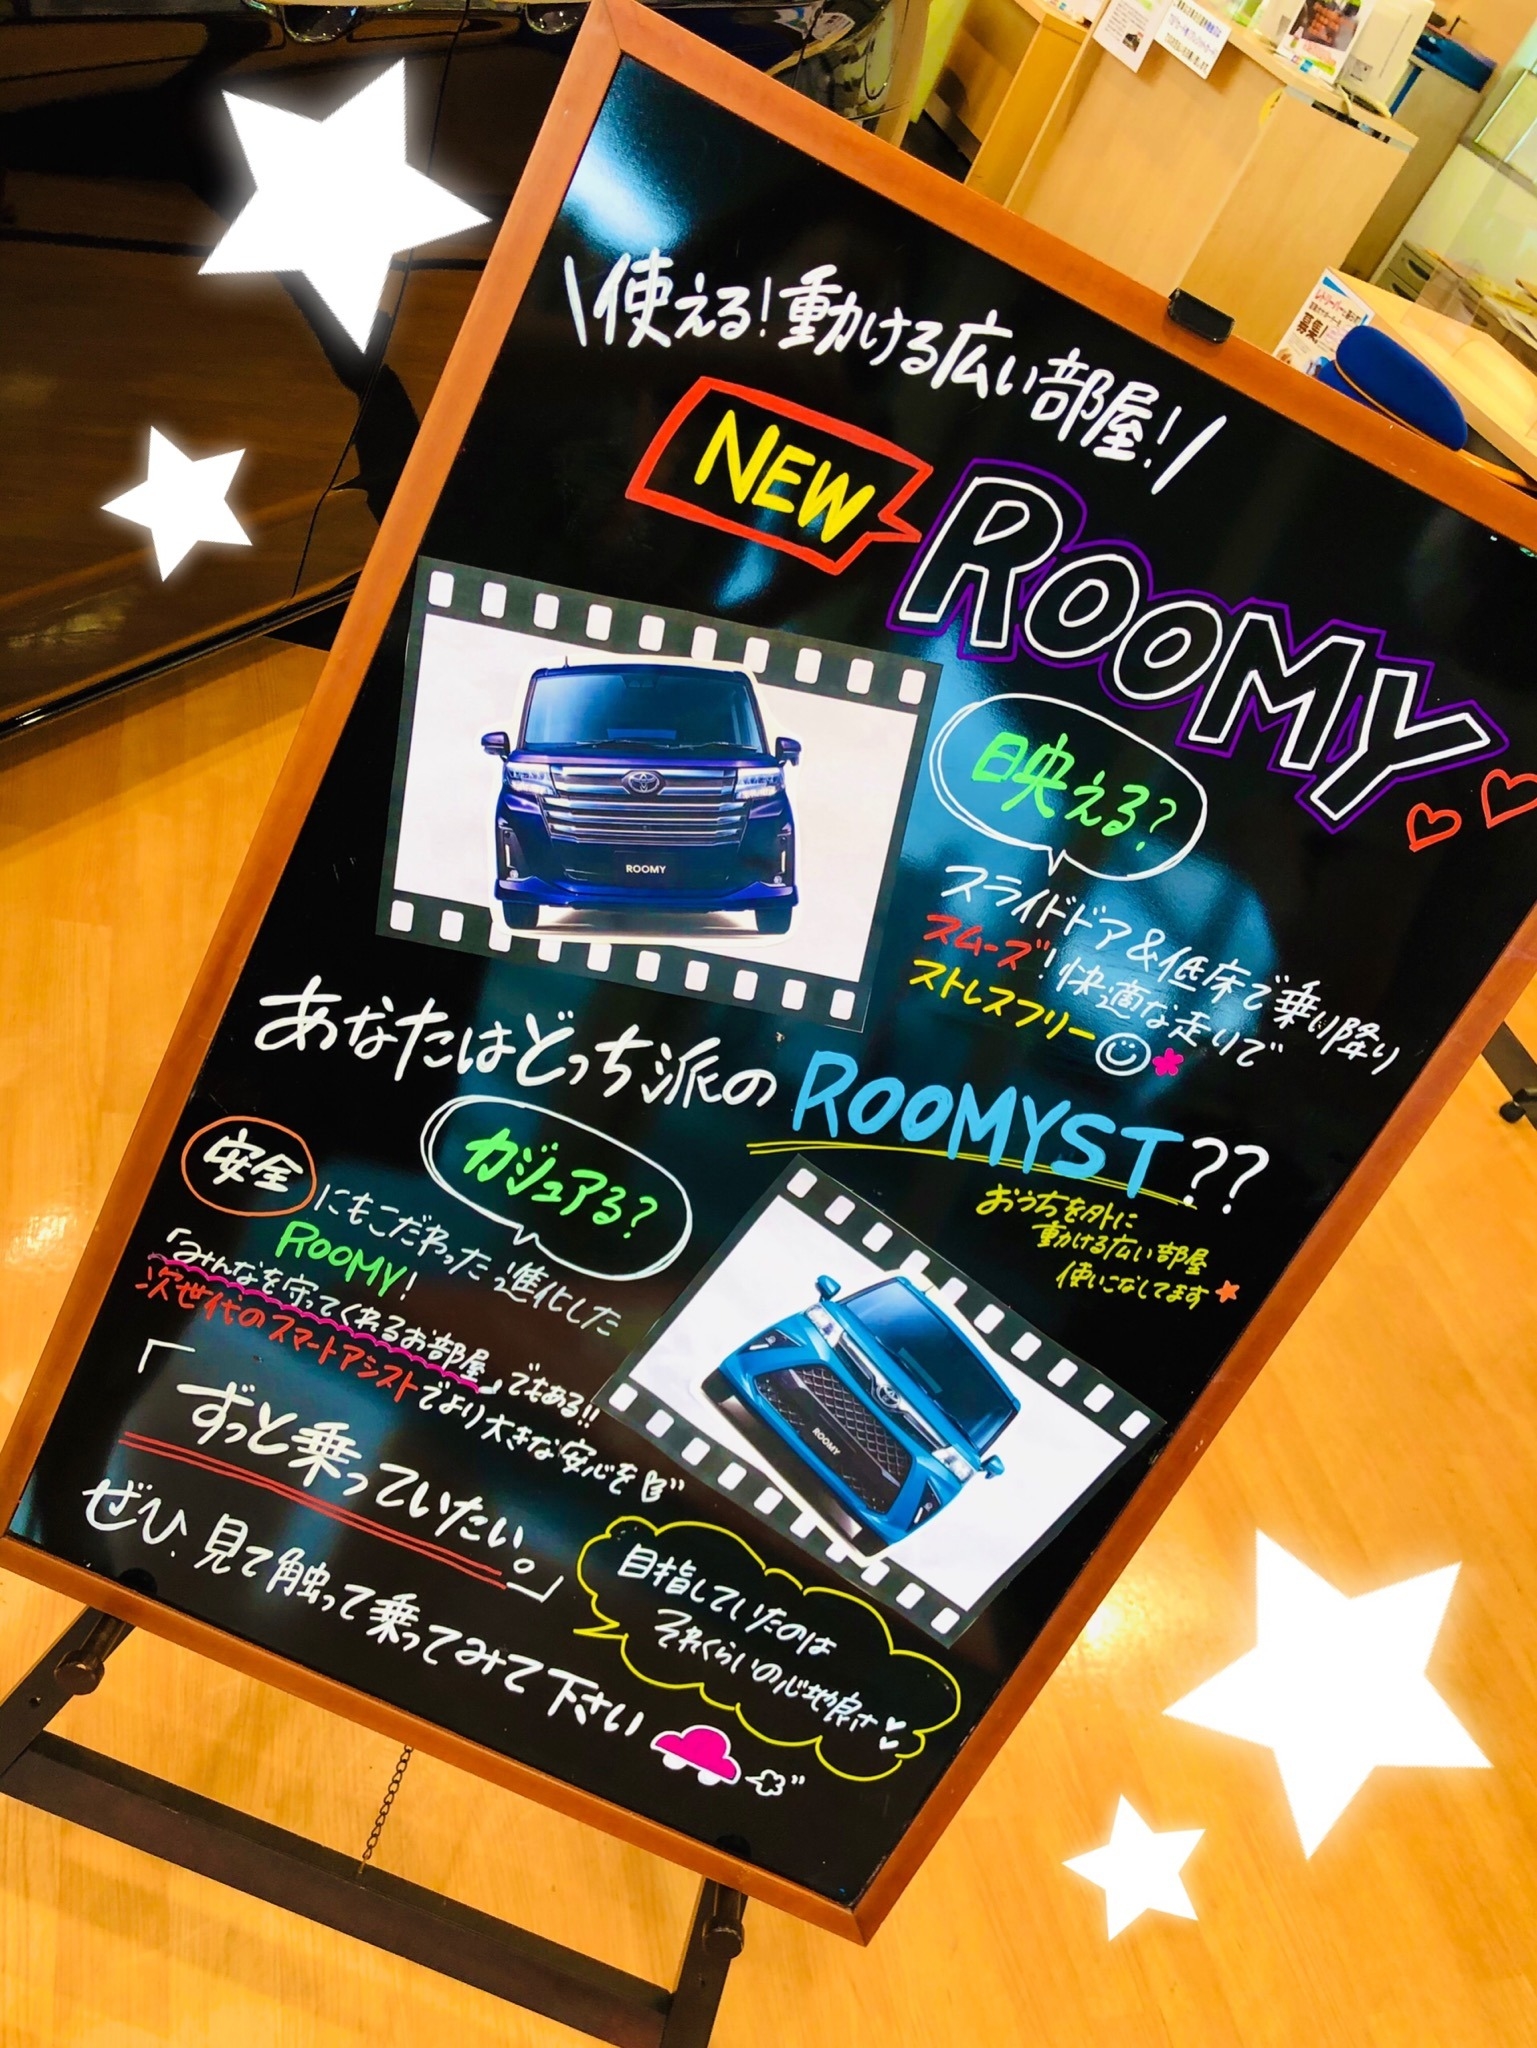 使える！動ける広い部屋！
NEW
ROOMY
日映える？
スライドドア&低床で乗り降り
スムーズ！快適な走りで
ストレスフリー
ROOMY
あなたはどっち派の ROOMYST??
おうちを外に
動ける広い部屋
使いこなしてます
カジュアる？
安全にもこだわった進化した
ROOMY!
「みんなを守ってくれるお部屋」でもある!!
次世代のスマートアシストでより大きな安心を
ROOMY
「ずっと乗っていたい。」
目指していたのは
それくらいの心地良さ
ぜひ、見て触って乗ってみて下さい
募集！